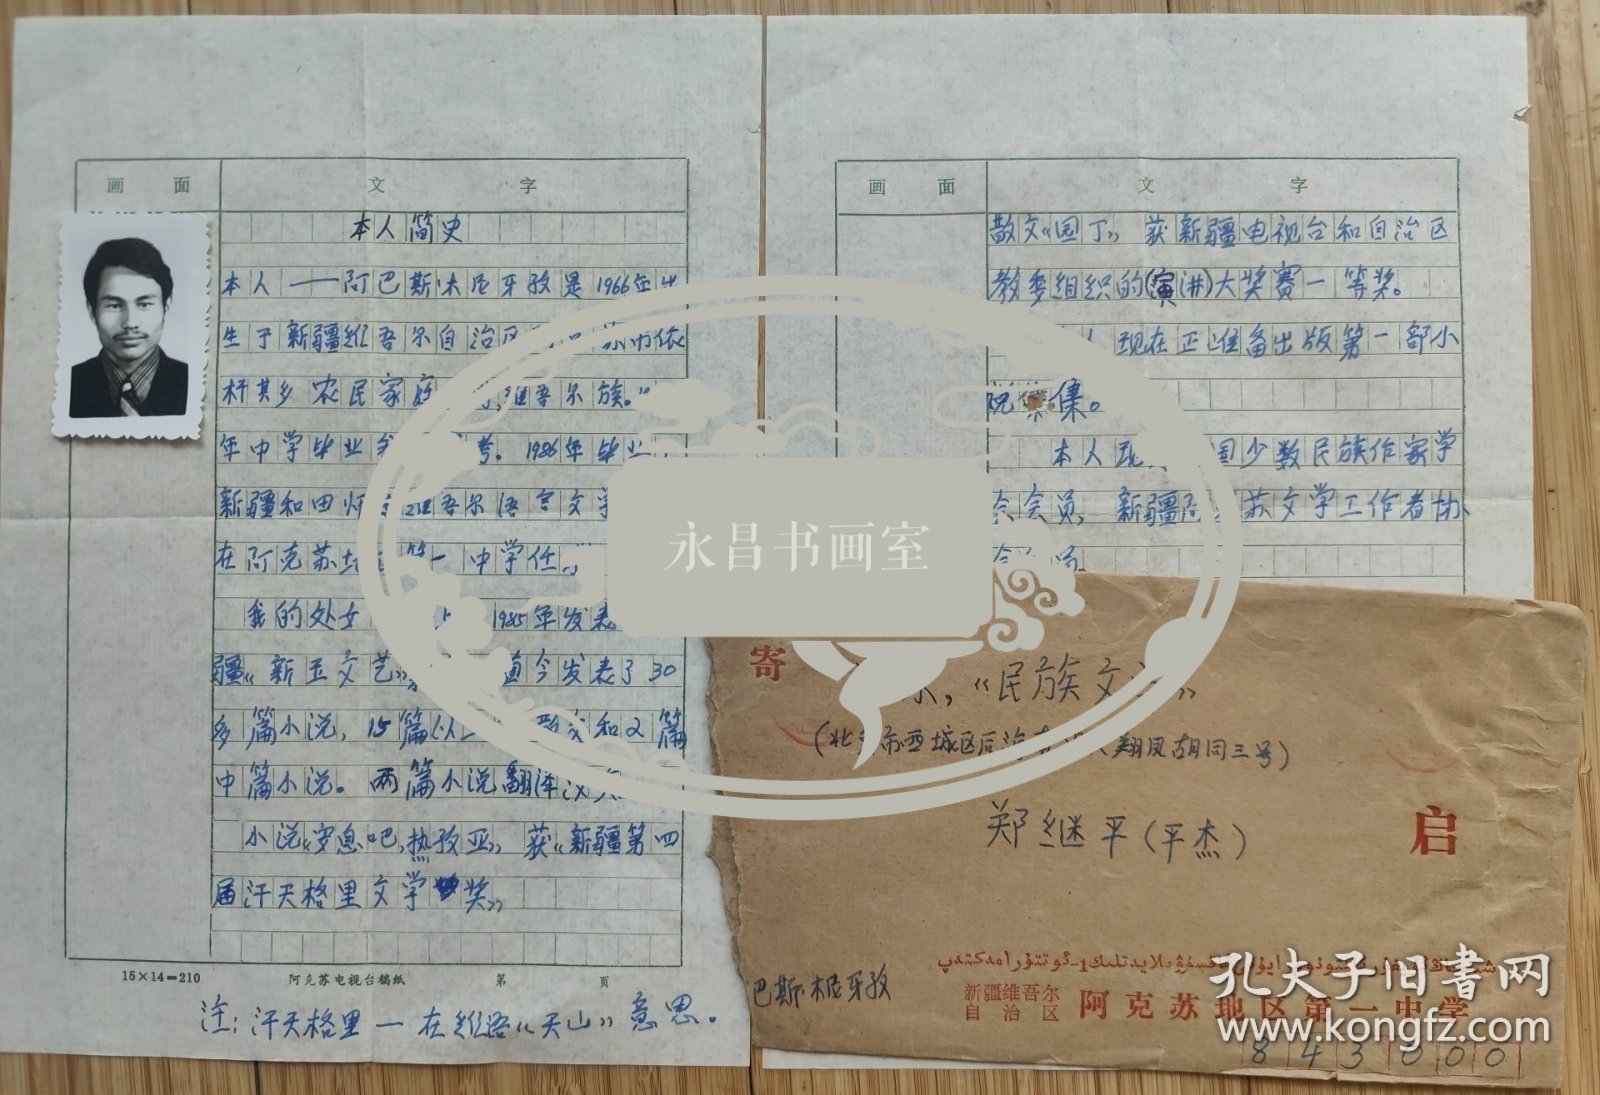 画 面 文 字
本人简史
本人——阿巴斯·木尼牙孜是1966年出
生于新疆维吾尔自治区 市依
杆其乡农民家庭 维吾尔族。
年中学毕业 考。1986年毕业
新疆和田师 维吾尔语言文学
在阿克苏地 第一中学任
我的处女 1985年发表
疆《新玉文艺》 至今发表了30
多篇小说,15篇以 散文和2篇
中篇小说。两篇小说翻译汉
小说《安息吧,热孜亚》获《新疆第四
届汗天格里文学奖》
15×14=210 阿克苏电视台稿纸 第 页
注:汗天格里—在维语《天山》意思。
画 面 文 字
散文《园丁》获新疆电视台和自治区
教委组织的(演讲)大奖赛一等奖。
人现在正准备出版第一部小
说集。
本人现 国少数民族作家学
会会员,新疆阿 苏文学工作者协
会
寄
京,《民族文 》
(北 市西城区后海南 翔凤胡同三号)
郑继平(平杰)
启
巴斯·木尼牙孜
新疆维吾尔
自治区
阿克苏地区第一中学
843000
永昌书画室
孔夫子旧书网
www.kongfz.com